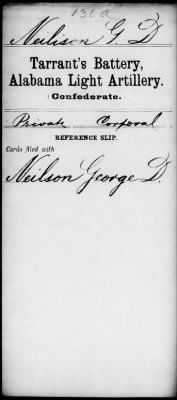 130a
Neilison G. D
Tarrant's Battery,
Alabama Light Artillery.
Confederate.
Private Corporal
REFERENCE SLIP.
Cards filed with
Neilson George D.